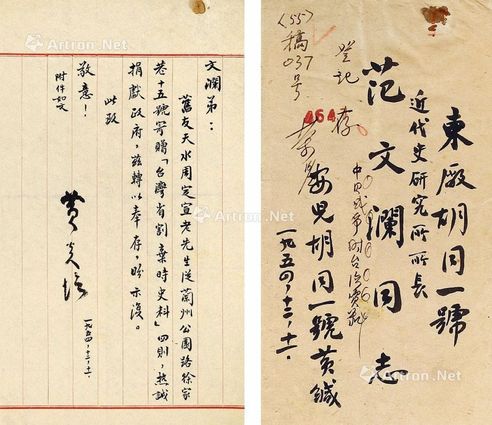 Artron.Net
文瀾弟：
舊友天水周定宣老先生從蘭州公園路徐家
巷十五號寄贈「台灣省割棄時史料」四則，熱誠
捐獻政府，茲轉以奉存，盼示復。
此致
敬意！
附件如文
黃炎培
一九五四，十二，十一．
Artron.Net
東厰胡同一號
近代史研究所所長
范文瀾同志
中日战争时台湾資料
安児胡同一號黃緘
一九五四，十二，十一．
登記
存
464
〈55〉稿037号
Artron.Net
Artron.Net